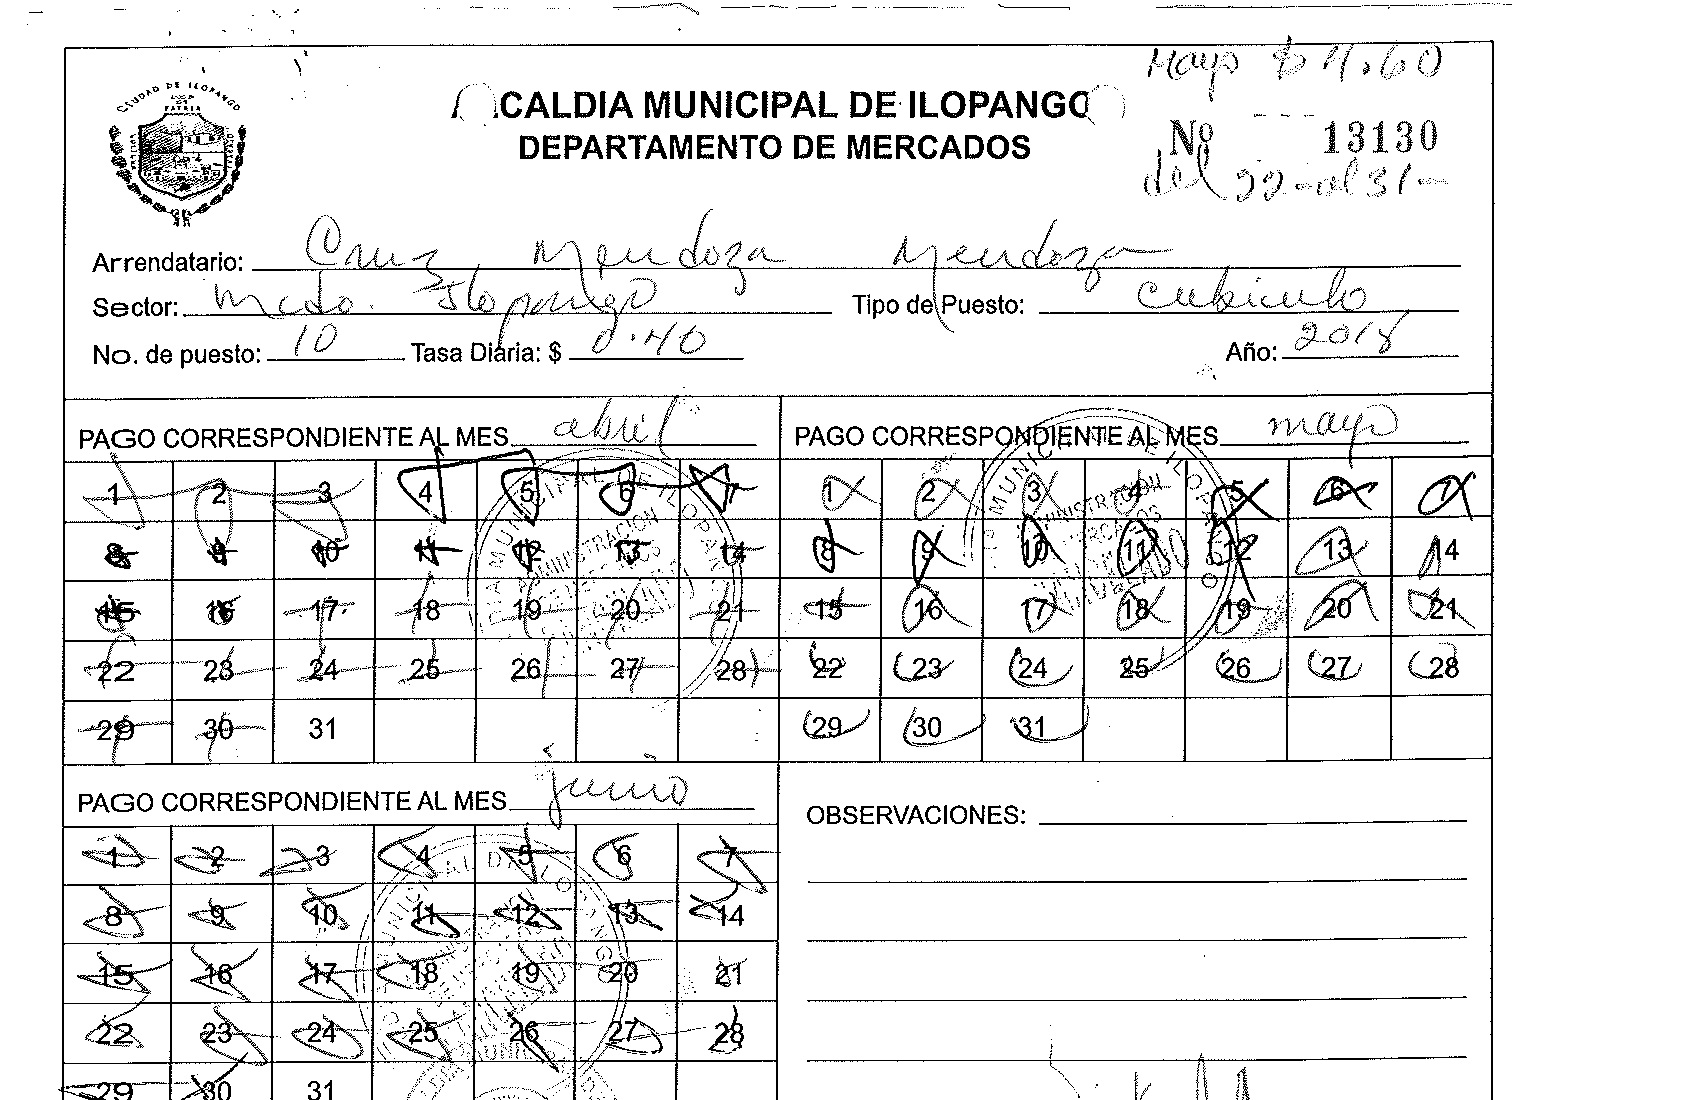 Mayo $ 4.60
CIUDAD DE ILOPANGO
PATRIA
CALDIA MUNICIPAL DE ILOPANGO
DEPARTAMENTO DE MERCADOS
Nº 13130
del 22-al 31-
Arrendatario: Cruz Mendoza Mendoza
Sector: Mcdo. Ilopango Tipo de Puesto: cubiculo
No. de puesto: 10 Tasa Diaria: $ 0.40 Año: 2018
PAGO CORRESPONDIENTE AL MES abril
1 2 3 4 5 6 7
8 9 10 11 12 13 14
15 16 17 18 19 20 21
22 23 24 25 26 27 28
29 30 31
PAGO CORRESPONDIENTE AL MES mayo
1 2 3 4 5 6 7
8 9 10 11 12 13 14
15 16 17 18 19 20 21
22 23 24 25 26 27 28
29 30 31
PAGO CORRESPONDIENTE AL MES junio
1 2 3 4 5 6 7
8 9 10 11 12 13 14
15 16 17 18 19 20 21
22 23 24 25 26 27 28
29 30 31
OBSERVACIONES: